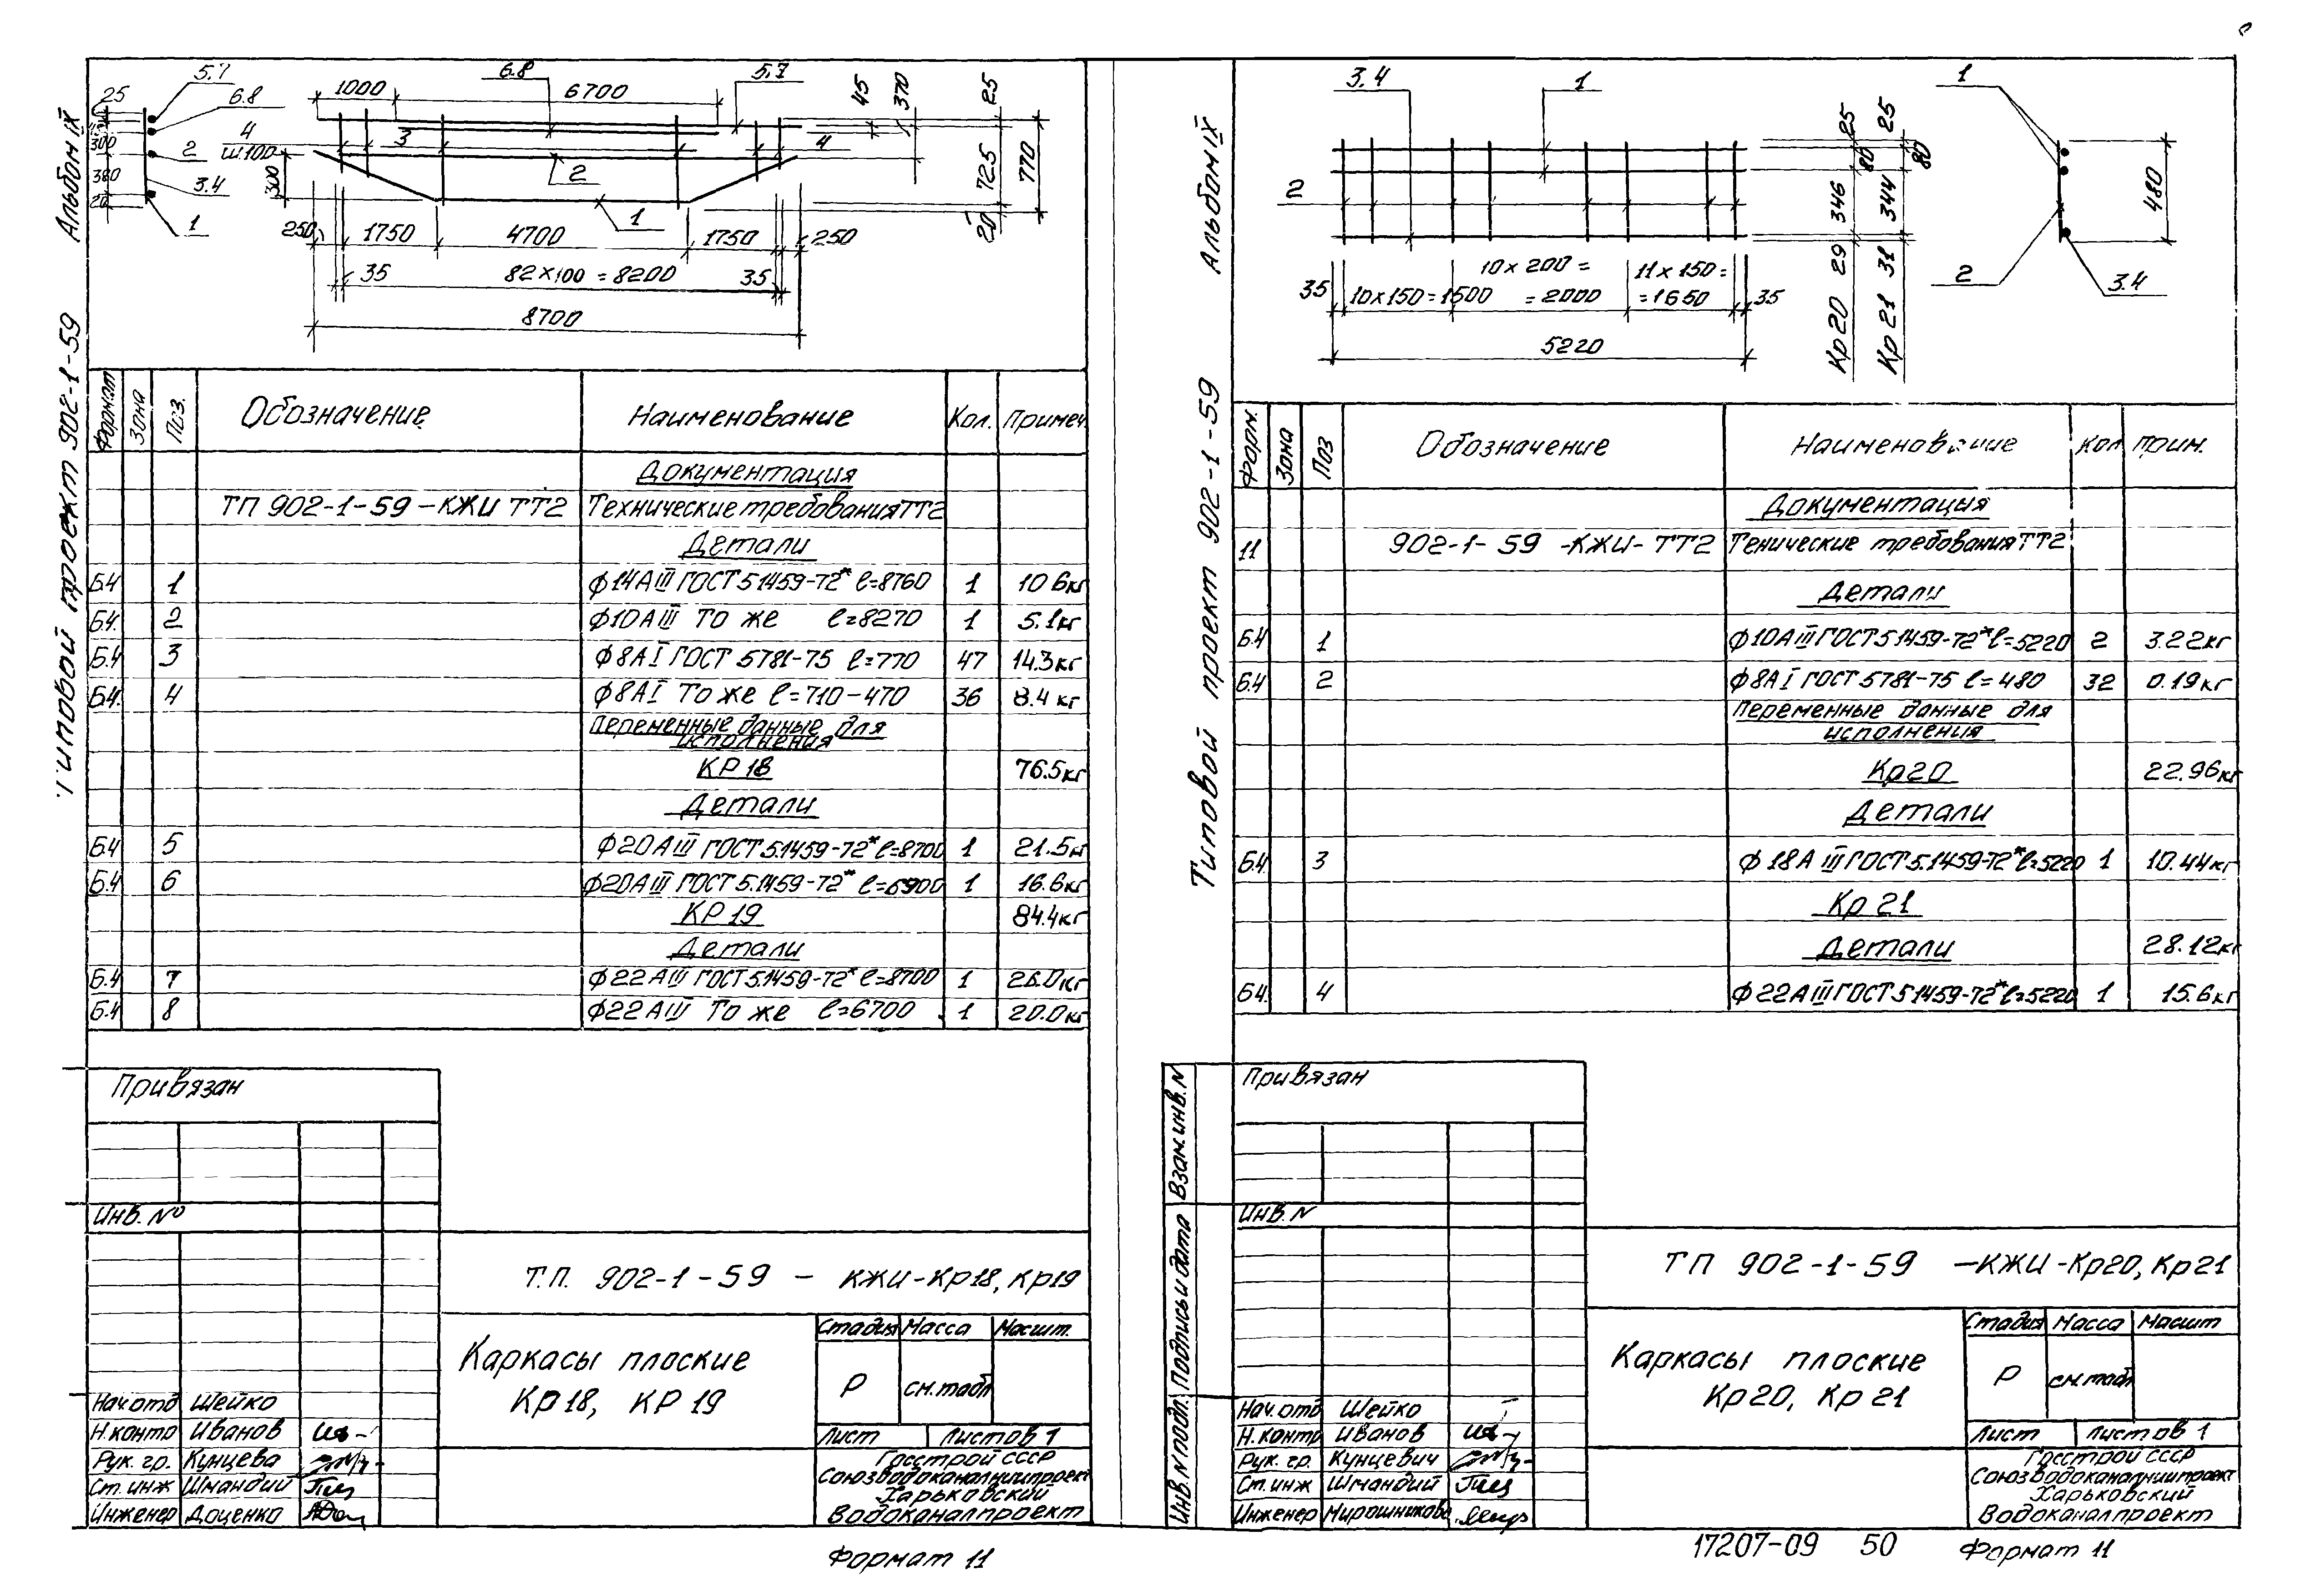 Альбом IX
Типовой проект 902-1-59
5.7
6.8
25
300
2
380
3.4
20
1
1000
6.8
6700
5.7
45
370
25
4
ш.100
3
4
300
2
725
770
1
20
250
1750
4700
1750
250
35
82×100=8200
35
8700
Формат Зона Поз. Обозначение Наименование Кол. Примеч.
Документация
ТП 902-1-59-КЖИ ТТ2 Технические требования ТТ2
Детали
Б.4 1 ф14АIII ГОСТ 5.1459-72* ℓ=8760 1 10.6кг
Б.4. 2 ф10АIII То же ℓ=8270 1 5.1кг
Б.4 3 ф8АI ГОСТ 5781-75 ℓ=770 47 14.3кг
Б.4. 4 ф8АI То же ℓ=710-470 36 8.4кг
Переменные данные для
исполнения
КР18 76.5кг
Детали
Б.4 5 ф20АIII ГОСТ 5.1459-72* ℓ=8700 1 21.5кг
Б.4 6 ф20АIII ГОСТ 5.1459-72* ℓ=6900 1 16.6кг
КР19 84.4кг
Детали
Б.4 7 ф22АIII ГОСТ 5.1459-72* ℓ=8700 1 26.0кг
Б.4 8 ф22АIII То же ℓ=6700 1 20.0кг
Привязан
Инв. №
Т.П. 902-1-59 - КЖИ-Кр18, Кр19
Каркасы плоские
Кр18, КР19
Стадия Масса Масшт.
Р см.табл
Лист Листов 1
Нач.отд Шейко
Н.контр Иванов
Рук. гр. Кунцева
Ст.инж Шмандий
Инженер Доценко
Госстрой СССР
Союзводоканалниипроект
Харьковский
Водоканалпроект
Формат 11
Альбом IX
Типовой проект 902-1-59
3.4
1
2
35
10×150=1500
10×200=
=2000
11×150=
=1650
35
5220
25
80
346
29
Кр20
25
80
344
31
Кр21
1
480
2
3.4
Форм. Зона Поз Обозначение Наименование Кол Прим.
Документация
11 902-1-59 -КЖИ-ТТ2 Тенические требования ТТ2
Детали
Б.4 1 ф10АIII ГОСТ 5.1459-72* ℓ=5220 2 3.22кг
Б.4 2 ф8АI ГОСТ 5781-75 ℓ=480 32 0.19кг
Переменные данные для
исполнения
Кр20 22.96кг
Детали
Б.4. 3 ф18АIII ГОСТ 5.1459-72* ℓ=5220 1 10.44кг
Кр21
Детали 28.12кг
Б.4. 4 ф22АIII ГОСТ 5.1459-72* ℓ=5220 1 15.6кг
Привязан
Инв. N
Взам.инв.N
Подпись и дата
Инв.N подл.
ТП 902-1-59 -КЖИ-Кр20, Кр21
Каркасы плоские
Кр20, Кр21
Стадия Масса Масшт
Р см.табл
Лист Листов 1
Нач.отд Шейко
Н.контр Иванов
Рук. гр. Кунцевич
Ст.инж Шмандий
Инженер Мирошникова
Госстрой СССР
Союзводоканалниипроект
Харьковский
Водоканалпроект
17207-09 50 Формат 11